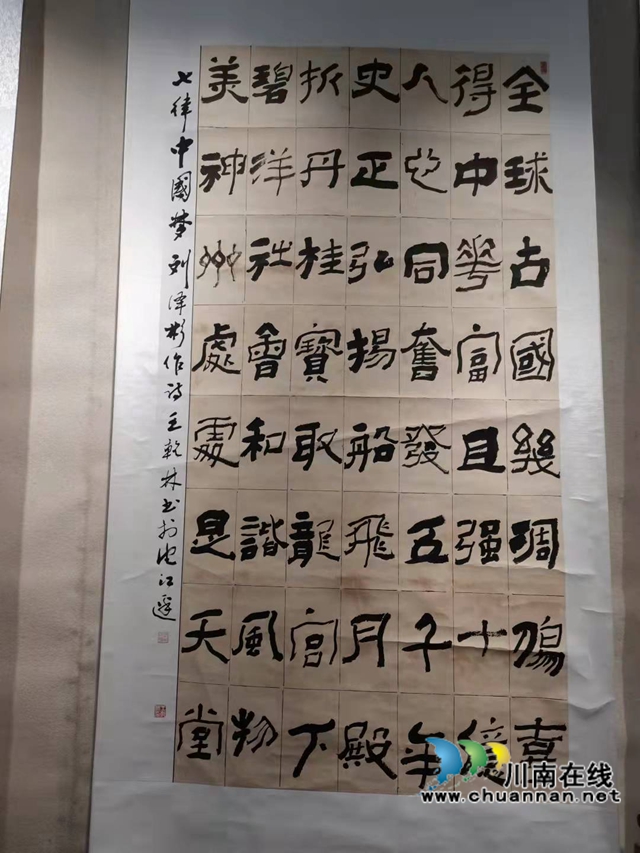 全球古國幾喜
得中華富且强十億
人心同奮發五千年
史正弘揚船飛月殿
折丹桂寶取龍宮下
碧洋社會和諧風物
美神州處處是天堂
七律中國梦刘泽彬作诗王乾林书於沱江邊
川南在线
www.chuannan.net